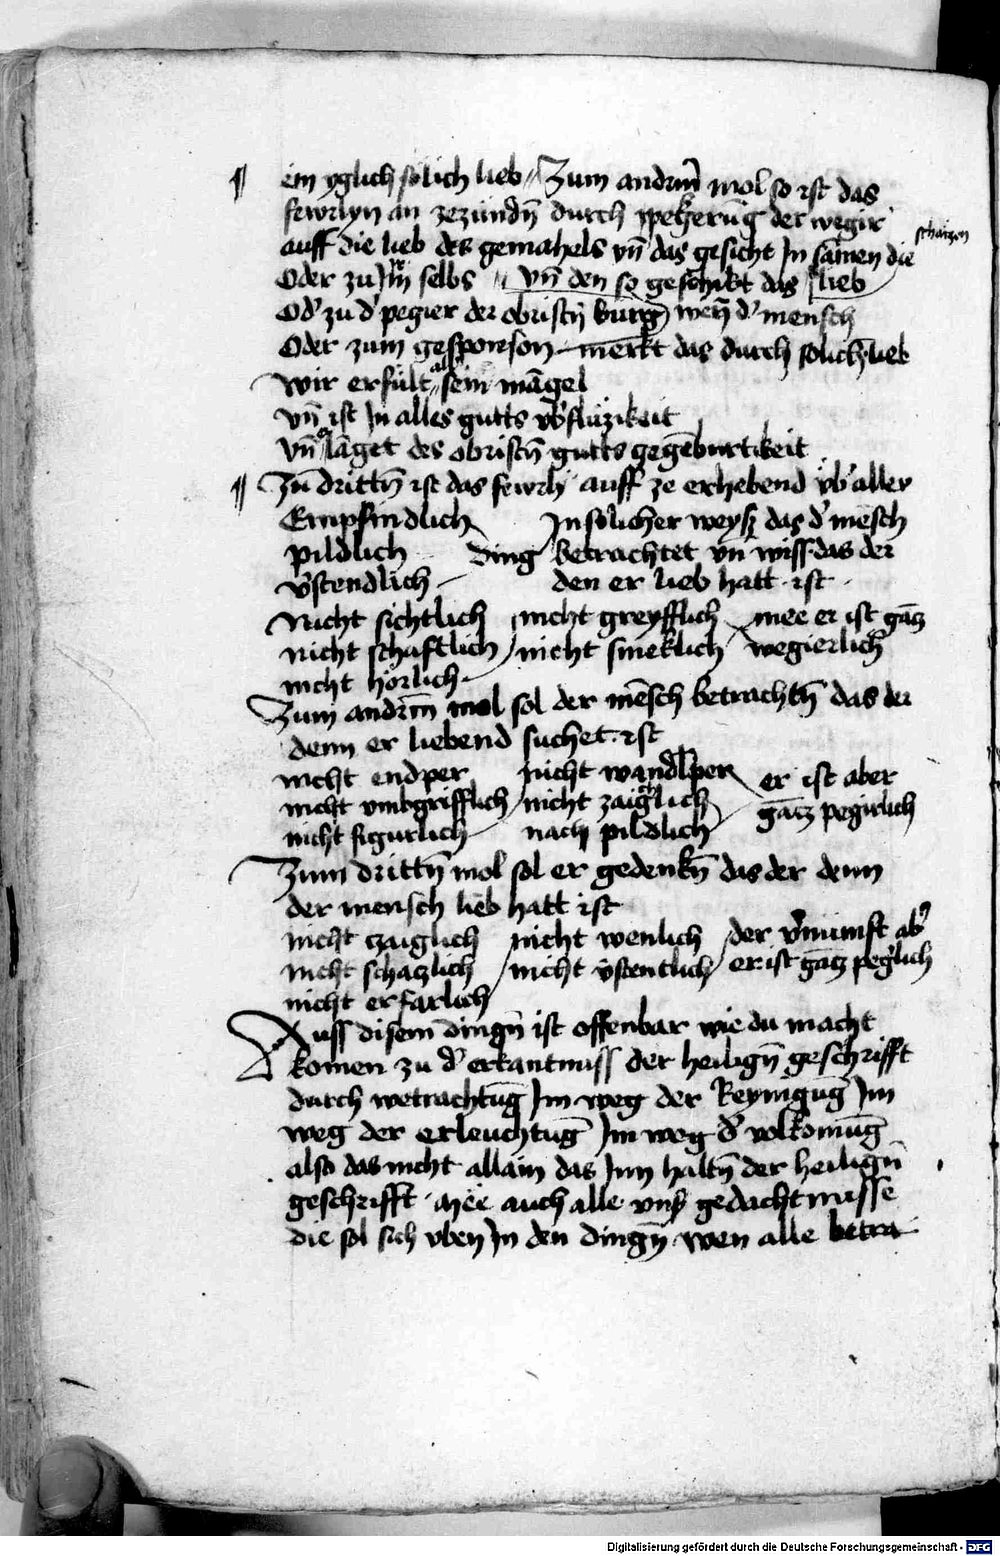 ¶ ein yglich solich lieb Zum andrm̄ mol so ist das
fewrlyn an zezündn̄ durch pekerūg der wegir
schaczen
auff die lieb des gemahels vn̄ das gesicht In samen die
Oder zu Im selbs vn̄ den so geschikt das lieb
Od' zu d' pegier der obristn̄ burg wen̄ d' mensch
Oder zum gesponson merkt das durch solich lieb
wir erfült als sein māgel
vn̄ ist In alles gutts vb'flüzikeit
vn̄ lāget des obristn̄ gutts gegēburtikeit
¶ Zu drittn̄ ist das fewrly auff ze erhebend vb' aller
Empfindlich In solicher weyß das d' mēsch
pildlich ding betrachtet vn̄ wiss das der
v'stendlich den er lieb hatt ist
Nicht sichtlich nicht greyfflich mee er ist gācz
nicht schaftlich nicht smeklich wegierlich
nicht hörlich
Zum andrm̄ mol sol der mēsch betrachtn̄ das der
denn er liebend suchet ist
nicht endper nicht wandlper er ist aber
nicht vmbgrifflich nicht zaiglich gācz pegirlich
nicht figurlich nach pildlich
Zum drittn̄ mol sol er gedenkn̄ das der denn
der mensch lieb hatt ist
nicht czaiglich nicht wenlich der v'nunft ab'
nicht schaczlich nicht v'stentlich er ist gācz peg'lich
nicht erfarlich
Auss disem dingn̄ ist offenbar wie du macht
komen zu d' erkantnuss der heilign̄ geschrifft
durch wetrachtūg Im weg der Reynigūg Im
weg der erleuchtūg Im weg d' volkomūg
also das nicht allain das Inn haltn̄ der heilign̄
geschrifft mee auch alle vnß gedachtnusse
die sol sich vben In den dingn̄ wen alle betra
Digitalisierung gefördert durch die Deutsche Forschungsgemeinschaft - DFG